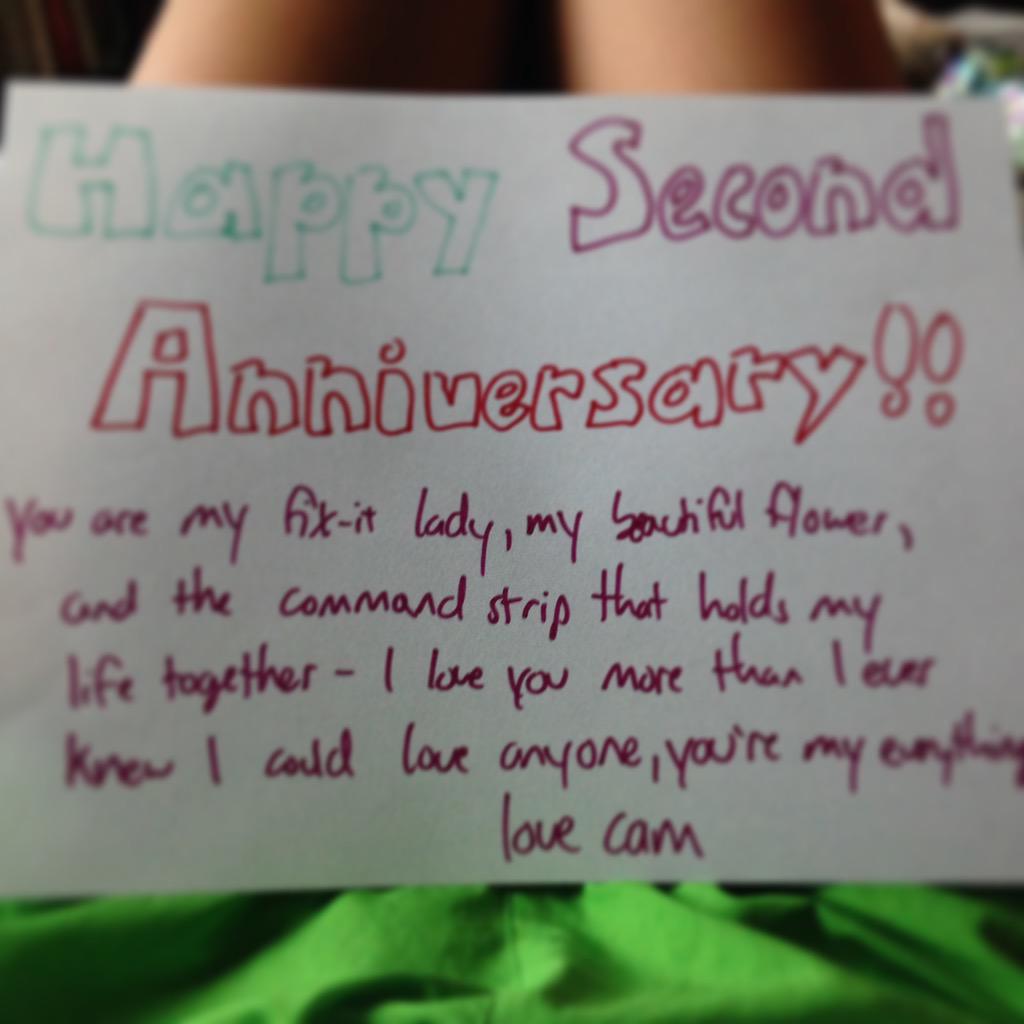 Happy Second
Anniversary!!
You are my fix-it lady, my beautiful flower,
and the command strip that holds my
life together - I love you more than I ever
knew I could love anyone, you're my everything
love cam